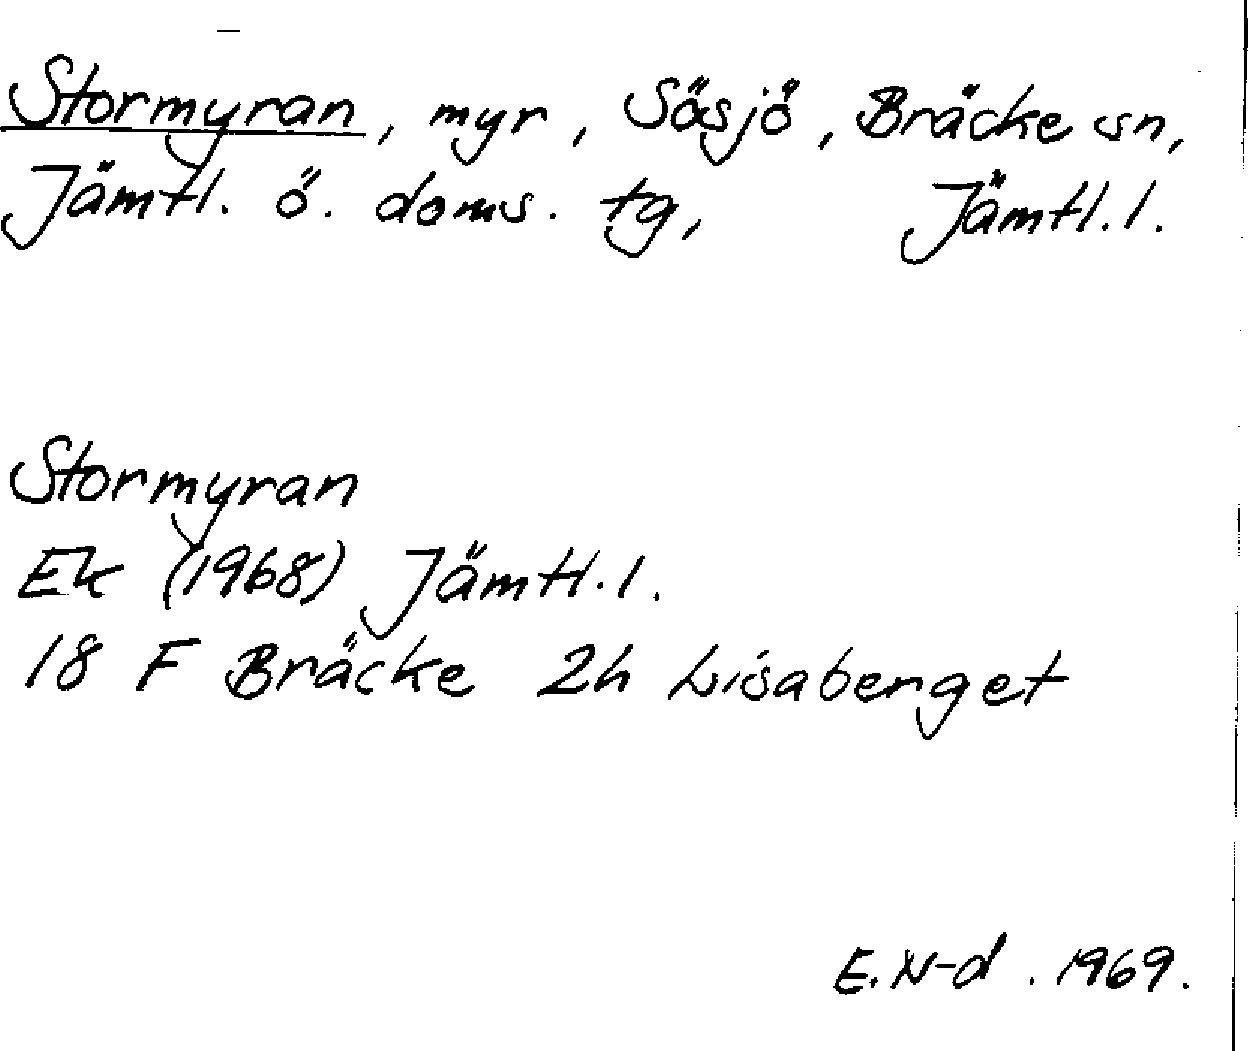 Stormyran, myr, Sösjö, Bräcke sn,
Jämtl. ö. doms. tg, Jämtl. l.
Stormyran
Ek (1968) Jämtl. l.
18 F Bräcke 2h Lisaberget
E. N-d. 1969.